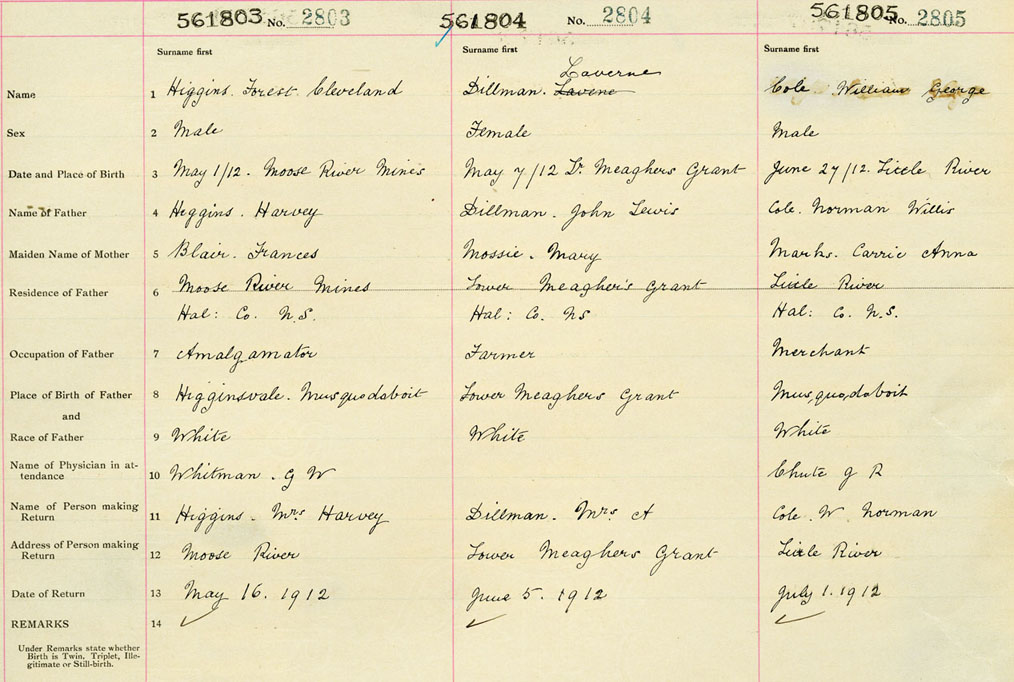 561803 No. 2803 561804 No. 2804 561805 No. 2805
Surname first Surname first Surname first
Laverne
Name 1 Higgins. Forest Cleveland Dillman. Lavene Cole William George
Sex 2 Male Female Male
Date and Place of Birth 3 May 1/12. Moose River Mines May 7/12 Lr. Meaghers Grant June 27/12. Little River
Name of Father 4 Higgins. Harvey Dillman. John Lewis Cole. Norman Willis
Maiden Name of Mother 5 Blair. Frances Mossie. Mary Marks. Carrie Anna
Residence of Father 6 Moose River Mines Lower Meagher's Grant Little River
Hal: Co. N.S. Hal: Co. NS Hal: Co. N.S.
Occupation of Father 7 Amalgamator Farmer Merchant
Place of Birth of Father 8 Higginsvale. Musquodoboit Lower Meaghers Grant Musquodoboit
and
Race of Father 9 White White White
Name of Physician in at-
tendance 10 Whitman. G W Chute G R
Name of Person making
Return 11 Higgins. Mrs Harvey Dillman. Mrs. A Cole. W. Norman
Address of Person making
Return 12 Moose River Lower Meaghers Grant Little River
Date of Return 13 May 16. 1912 June 5. 1912 July 1. 1912
REMARKS 14 ✓ ✓ ✓
Under Remarks state whether
Birth is Twin, Triplet, Ille-
gitimate or Still-birth.